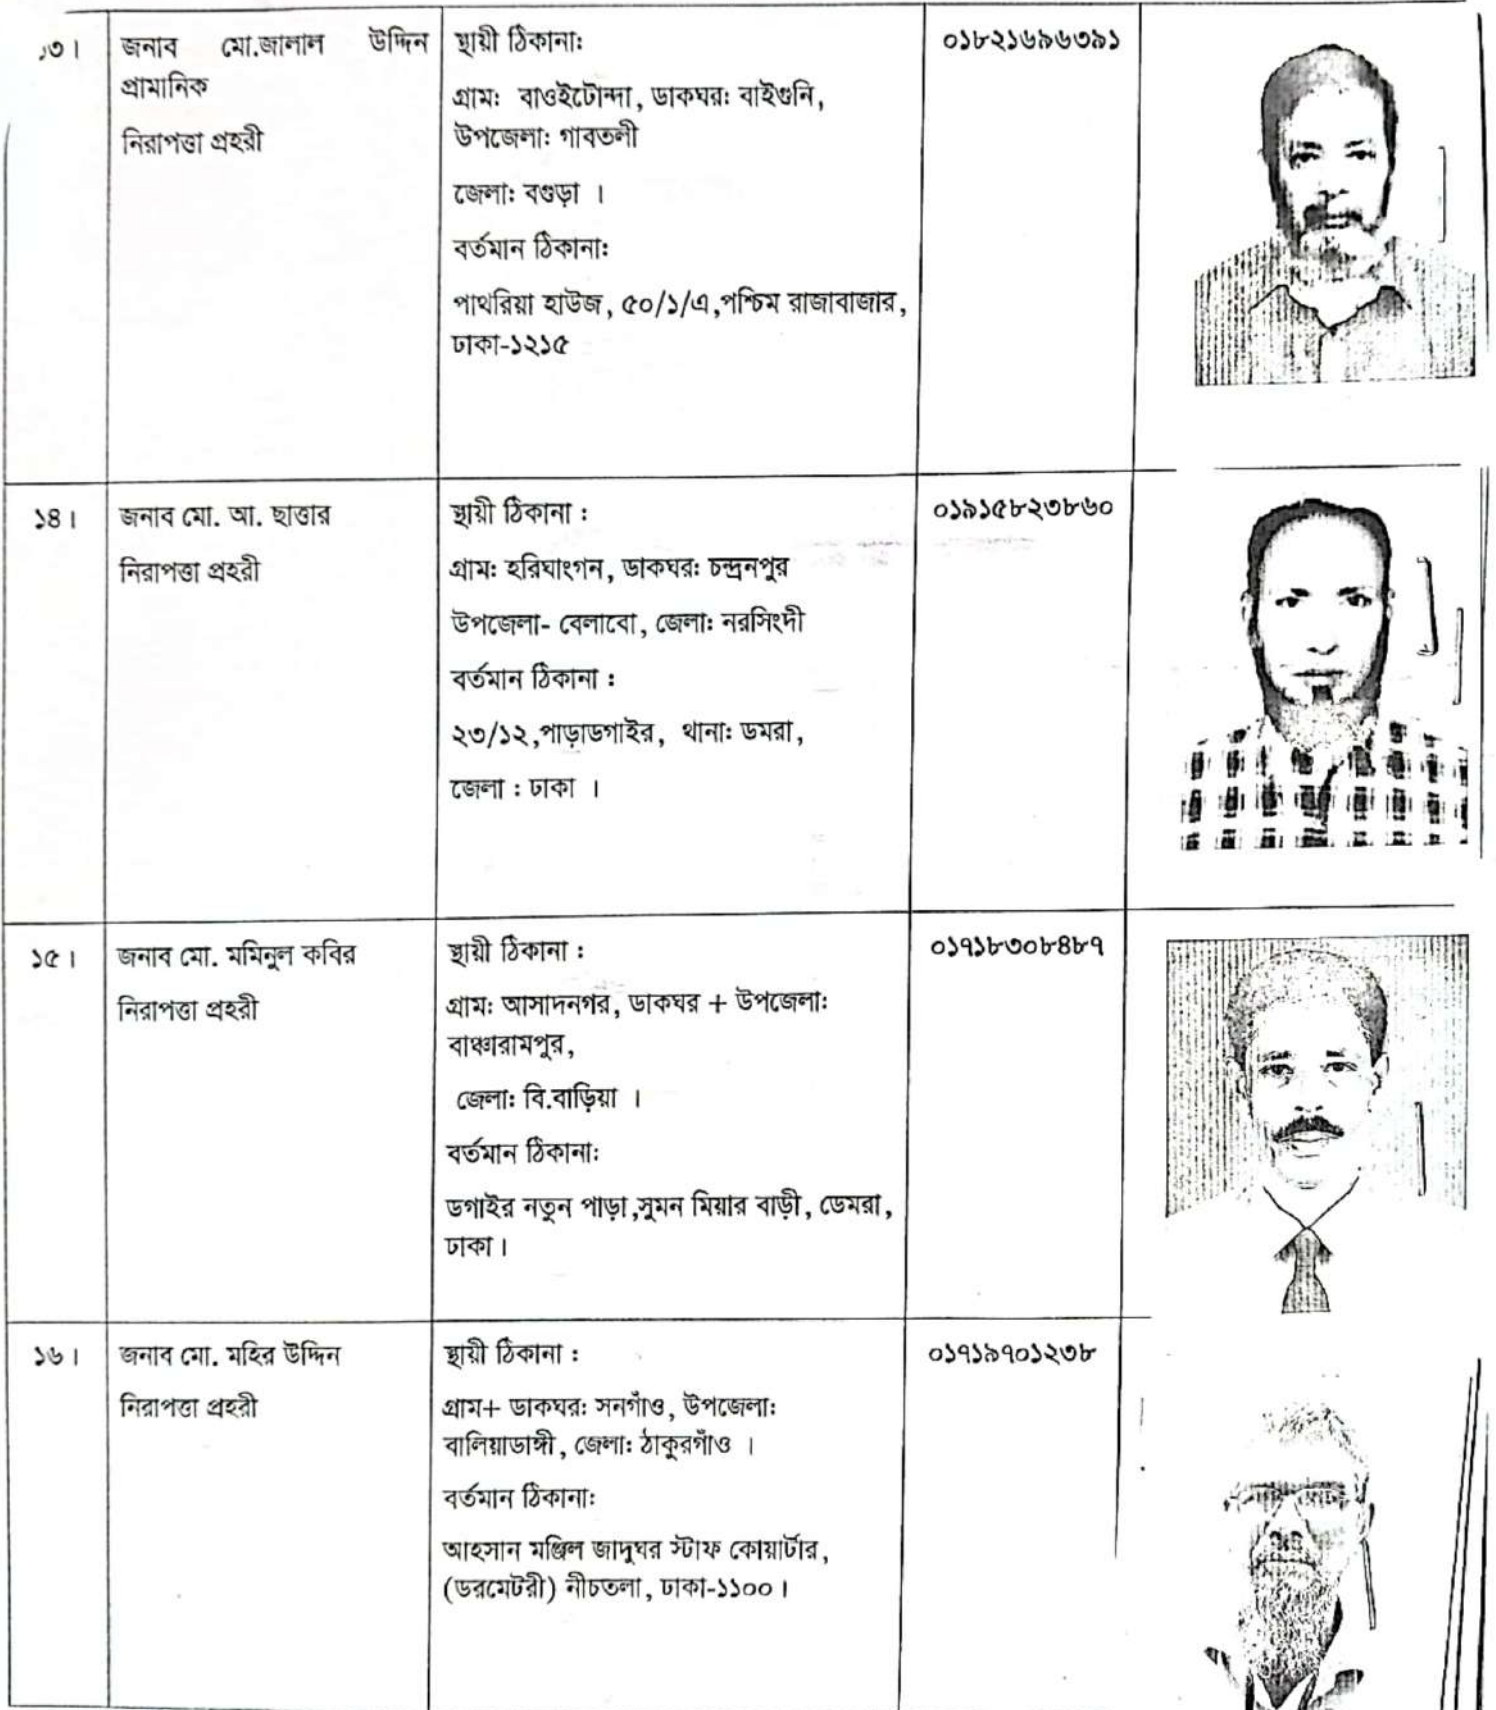 ১৩।
জনাব মো.জালাল উদ্দিন
প্রামানিক
নিরাপত্তা প্রহরী
স্থায়ী ঠিকানা:
গ্রাম: বাওইটোন্দা, ডাকঘর: বাইগুনি,
উপজেলা: গাবতলী
জেলা: বগুড়া ।
বর্তমান ঠিকানা:
পাথরিয়া হাউজ, ৫০/১/এ,পশ্চিম রাজাবাজার,
ঢাকা-১২১৫
০১৮২১৬৯৬৩৯১
১৪।
জনাব মো. আ. ছাত্তার
নিরাপত্তা প্রহরী
স্থায়ী ঠিকানা :
গ্রাম: হরিঘাংগন, ডাকঘর: চন্দ্রনপুর
উপজেলা- বেলাবো, জেলা: নরসিংদী
বর্তমান ঠিকানা :
২৩/১২,পাড়াডগাইর, থানা: ডমরা,
জেলা : ঢাকা ।
০১৯১৫৮২৩৮৬০
১৫।
জনাব মো. মমিনুল কবির
নিরাপত্তা প্রহরী
স্থায়ী ঠিকানা :
গ্রাম: আসাদনগর, ডাকঘর + উপজেলা:
বাঞ্চারামপুর,
জেলা: বি.বাড়িয়া ।
বর্তমান ঠিকানা:
ডগাইর নতুন পাড়া,সুমন মিয়ার বাড়ী, ডেমরা,
ঢাকা।
০১৭১৮৩০৮৪৮৭
১৬।
জনাব মো. মহির উদ্দিন
নিরাপত্তা প্রহরী
স্থায়ী ঠিকানা :
গ্রাম+ ডাকঘর: সনগাঁও, উপজেলা:
বালিয়াডাঙ্গী, জেলা: ঠাকুরগাঁও ।
বর্তমান ঠিকানা:
আহসান মঞ্জিল জাদুঘর স্টাফ কোয়ার্টার,
(ডরমেটরী) নীচতলা, ঢাকা-১১০০।
০১৭১৯৭০১২৩৮